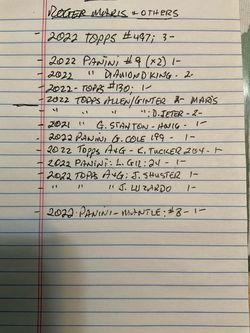 ROGER MARIS & OTHERS
- 2022 TOPPS #497; 3-
- 2022 PANINI #9 (x2) 1-
- 2022 " DIAMOND KING - 2-
- 2022 - TOPPS #130; 1-
- 2022 TOPPS ALLEN/GINTER & MARIS
" " ; D. JETER - 2-
- 2021 " G. STANTON - 1-
- 2022 PANINI G. COLE 199 - 1-
- 2022 TOPPS A+G - K. TUCKER 204 - 1-
- 2022 PANINI: L. GIL: 24 - 1-
- 2022 TOPPS A+G: J. SHUSTER 1-
- " " " J. LUZARDO 1-
- 2022 - PANINI - MANTLE: #3 - 1-